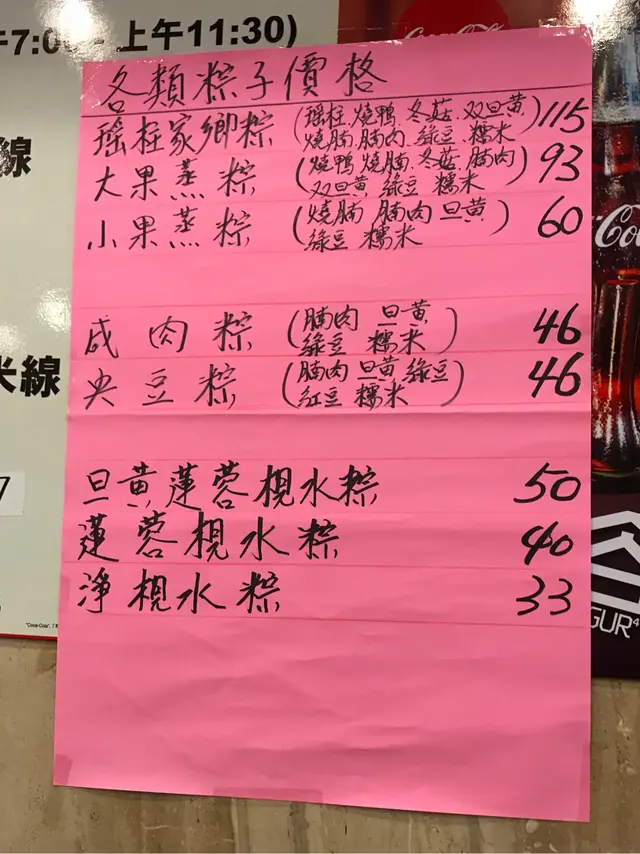 午7:00 - 上午11:30)
線
米線
7
各類粽子價格
瑶柱家鄉粽 (瑶柱.燒鴨.冬菇.双旦黄 115
燒腩.腩肉.綠豆.糯米)
大果蒸粽 (燒鴨.燒腩.冬菇.腩肉 93
双旦黄.綠豆 糯米)
小果蒸粽 (燒腩 腩肉 旦黄 60
綠豆 糯米)
咸肉粽 (腩肉 旦黄 46
綠豆 糯米)
央豆粽 (腩肉 旦黄 綠豆 46
红豆 糯米)
旦黄蓮蓉枧水粽 50
蓮蓉枧水粽 40
淨枧水粽 33
Coca-Cola
Co
GUR